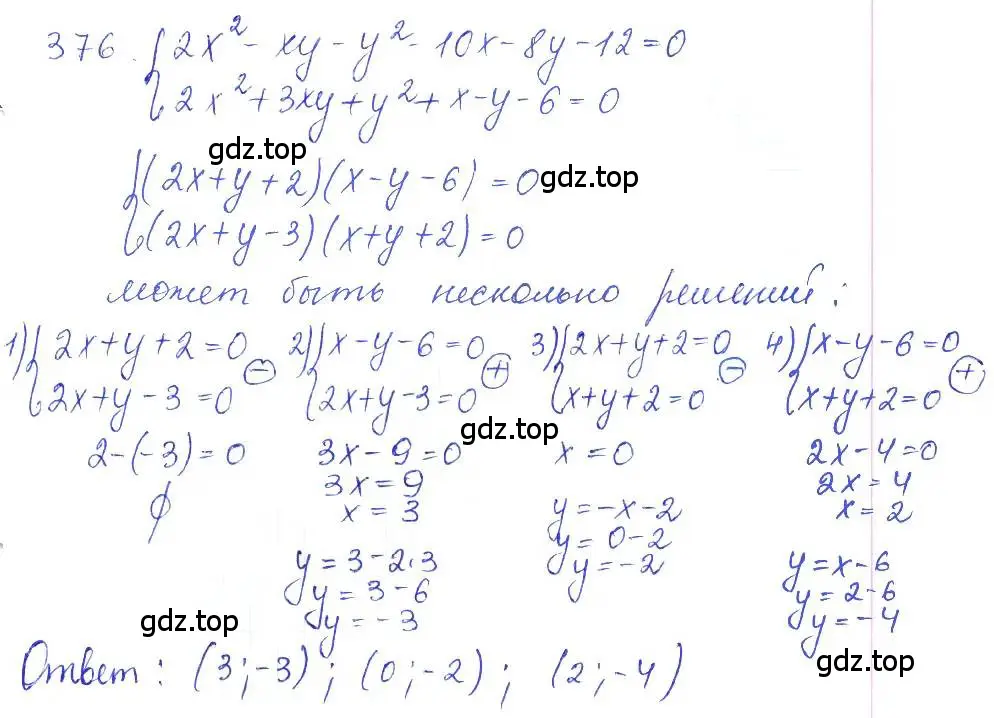 376. { 2x² - xy - y² - 10x - 8y - 12 = 0
{ 2x² + 3xy + y² + x - y - 6 = 0
gdz.top
{ (2x + y + 2)(x - y - 6) = 0 gdz.top
{ (2x + y - 3)(x + y + 2) = 0
может быть несколько решений:
1) { 2x + y + 2 = 0
{ 2x + y - 3 = 0 ⊖
2 - (-3) = 0
∅
2) { x - y - 6 = 0
{ 2x + y - 3 = 0 ⊕
gdz.top
3x - 9 = 0
3x = 9
x = 3
y = 3 - 2·3
y = 3 - 6
y = -3
3) { 2x + y + 2 = 0
{ x + y + 2 = 0 ⊖
x = 0
y = -x - 2
y = 0 - 2
y = -2
4) { x - y - 6 = 0
{ x + y + 2 = 0 ⊕
2x - 4 = 0
2x = 4
x = 2
y = x - 6
y = 2 - 6
y = -4
gdz.top
gdz.top
Ответ: (3; -3); (0; -2); (2; -4)